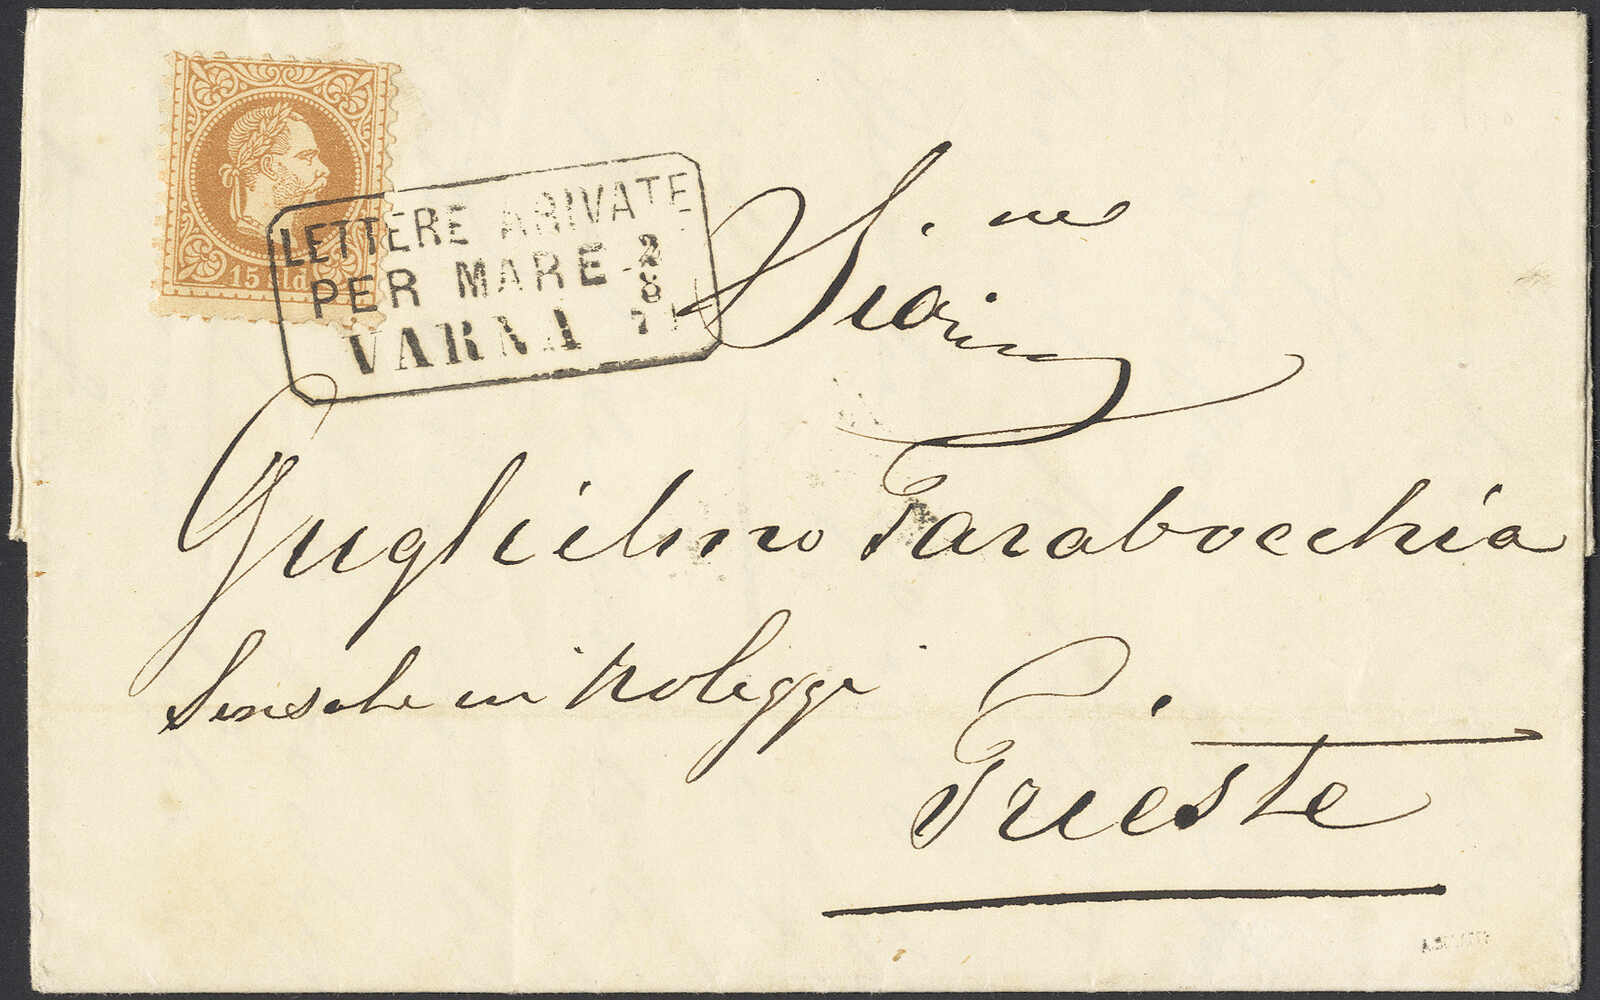 15 sld
LETTERE ARIVATE
PER MARE 2/8
VARNA 71
Guglielmo Tarabocchia
Sensale in Noleggi
Trieste